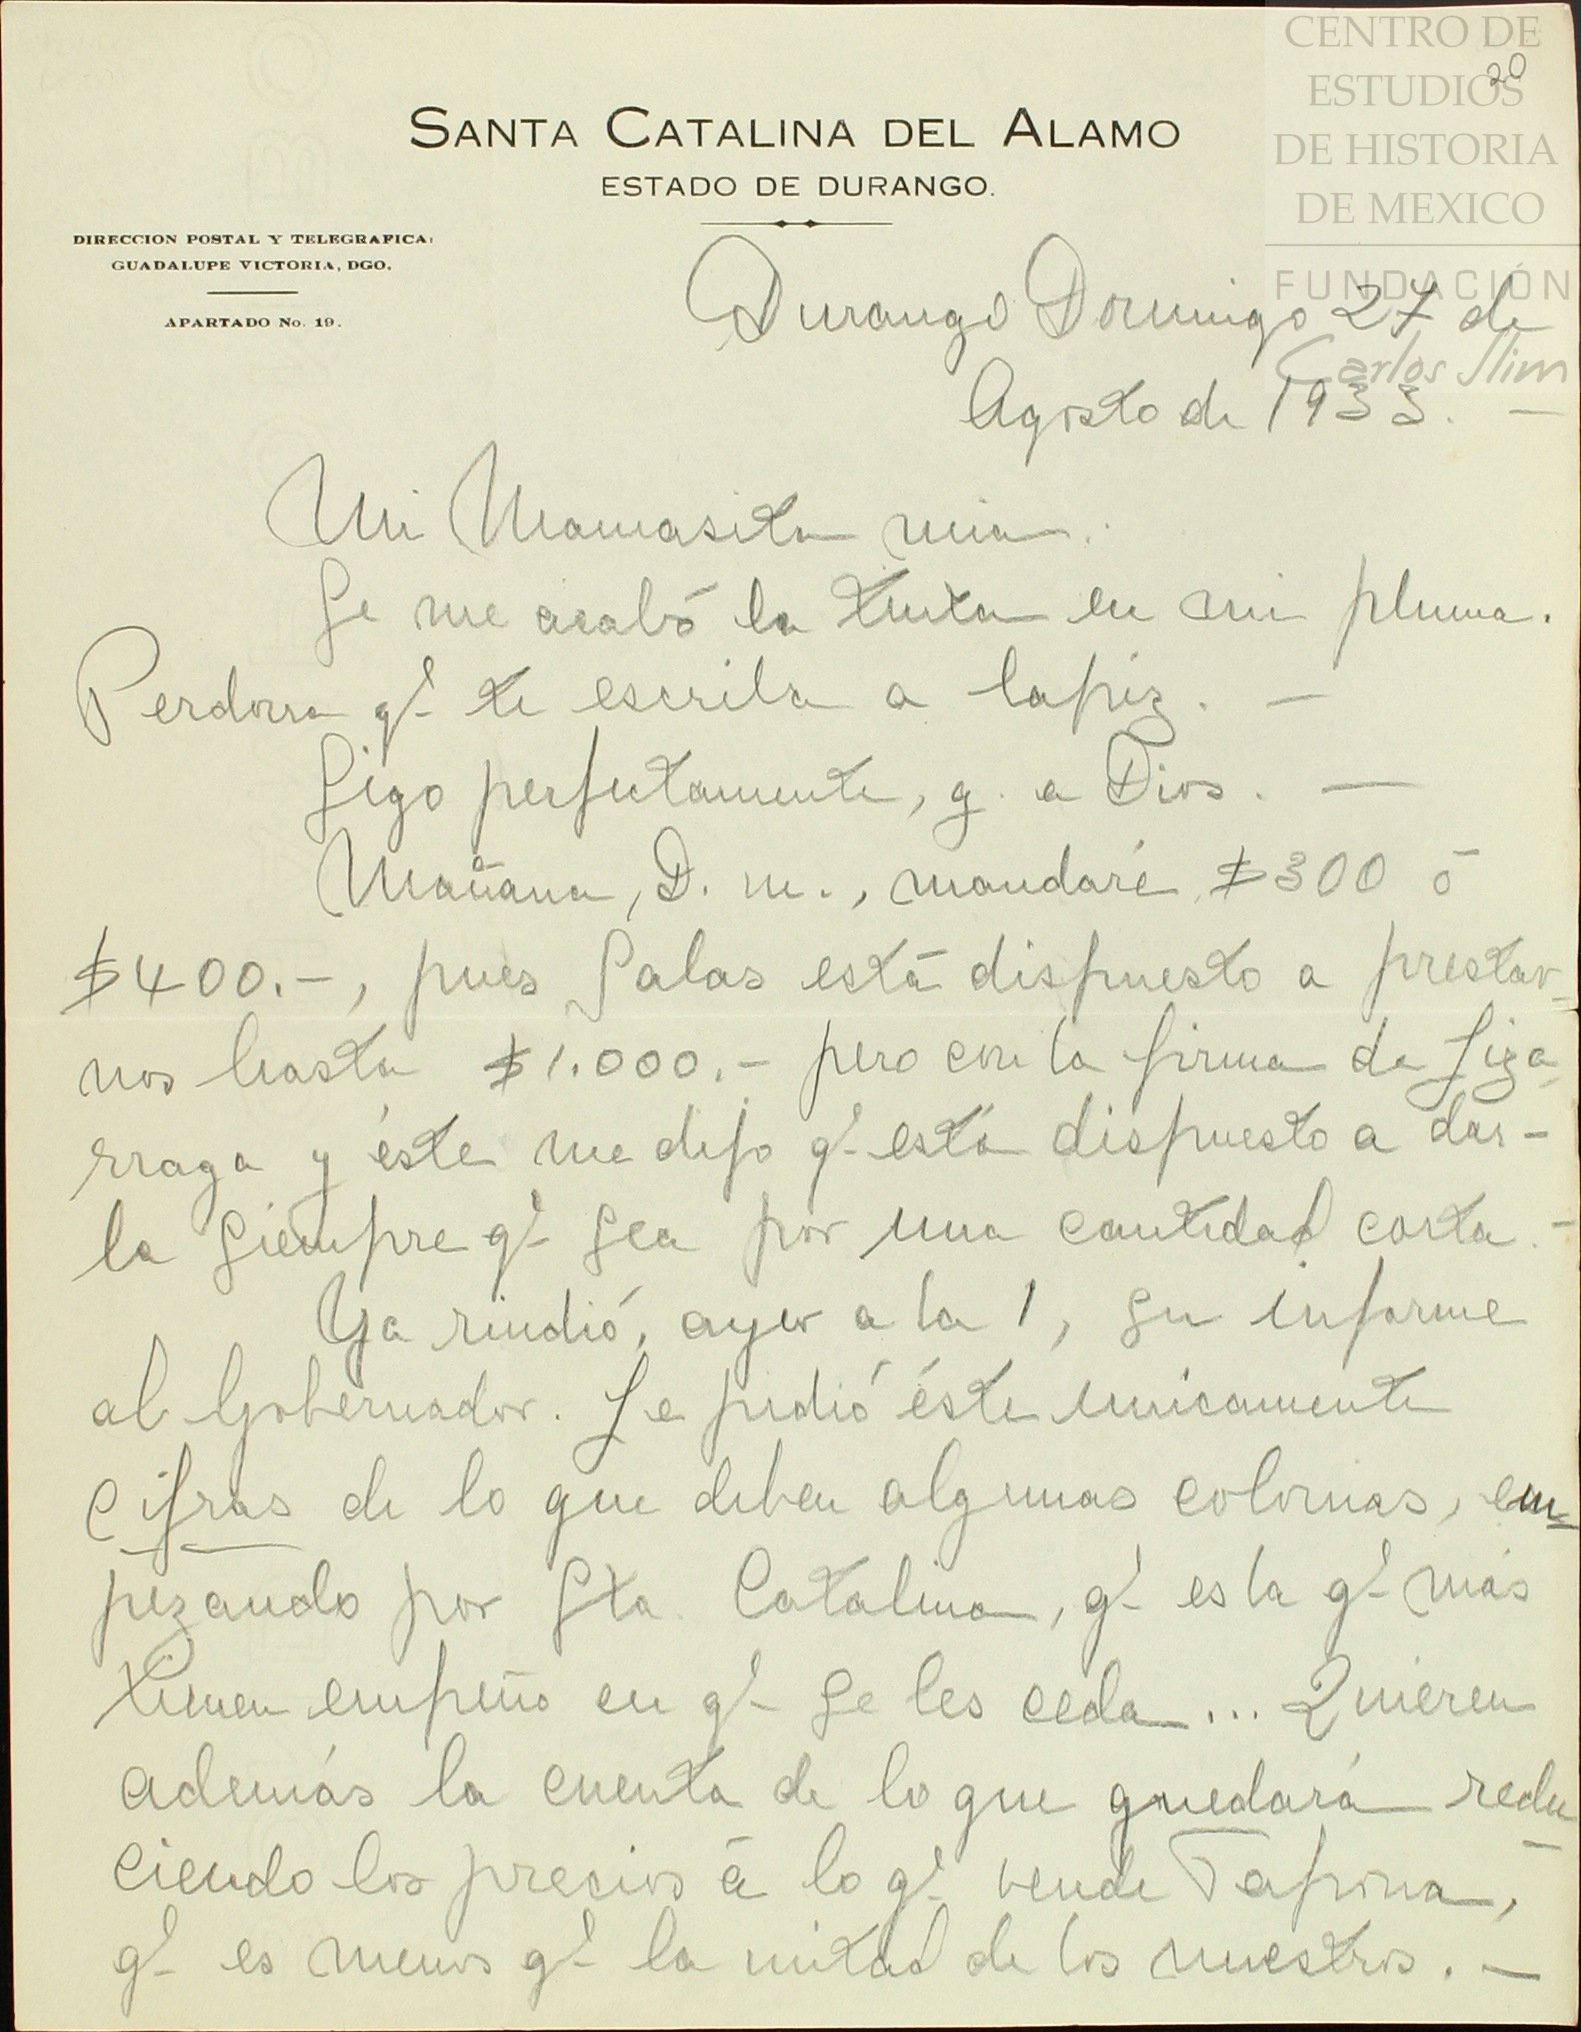 CENTRO DE
ESTUDIOS
DE HISTORIA
DE MEXICO
FUNDACIÓN
Carlos Slim
20
SANTA CATALINA DEL ALAMO
ESTADO DE DURANGO.
DIRECCION POSTAL Y TELEGRAFICA:
GUADALUPE VICTORIA, DGO.
APARTADO No. 19.
Durango Domingo 27 de
Agosto de 1933. —
Mi Mamasita mia.
Se me acabó la tinta en mi pluma.
Perdona qe te escriba a lapiz. —
Sigo perfectamente, g. a Dios. —
Mañana, D. m., mandaré $300 ó
$400.-, pues Salas está dispuesto a prestar-
nos hasta $1.000.- pero con la firma de Liza-
rraga y éste me dijo qe está dispuesto a dar-
la siempre qe sea por una cantidad corta. -
Ya rindió, ayer a la 1, su informe
al Gobernador. Le pidió éste unicamente
cifras de lo que deben algunas colonias, em-
pezando por Sta. Catalina, qe es la qe más
tienen empeño en qe se les ceda... Quieren
además la cuenta de lo que quedará redu-
ciendo los precios á lo qe vende Tapona,
qe es menos qe la mitad de los nuestros. —